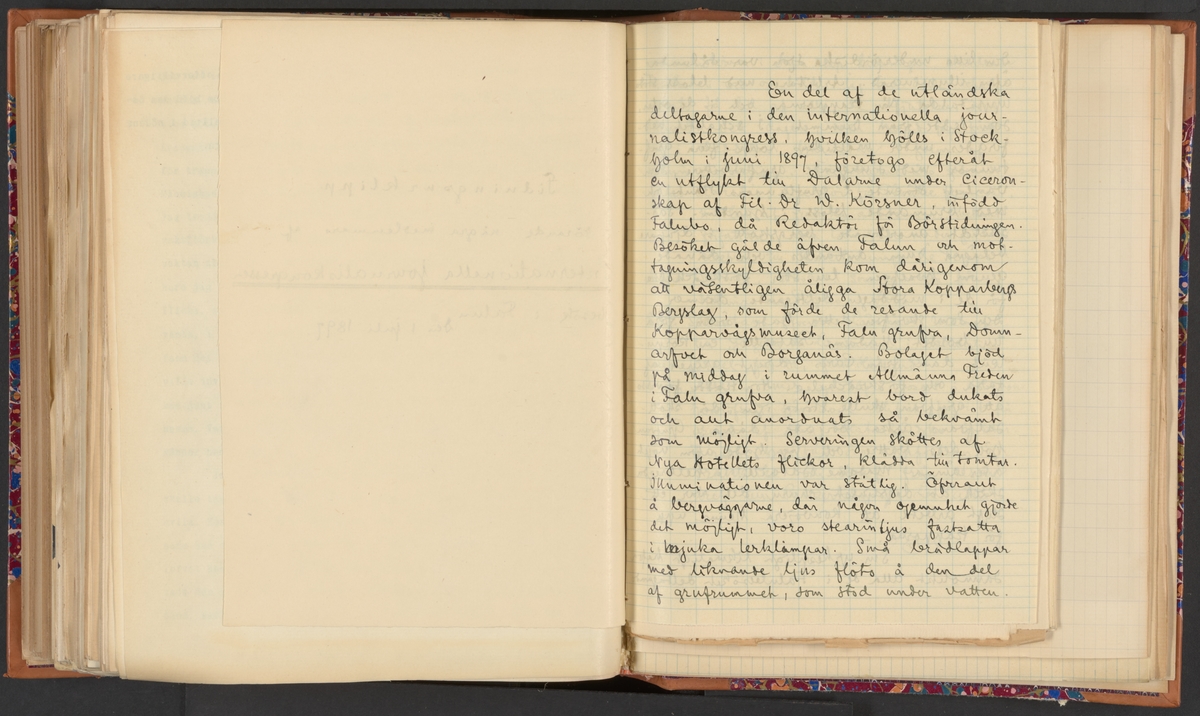 En del af de utländska
deltagarne i den internationella jour-
nalistkongress, hvilken hölls i Stock-
holm i juni 1897, företogo efteråt
en utflykt till Dalarne under Ciceron-
skap af Fil. Dr W. Körsner, infödd
Falubo, då Redaktör för Börstidningen.
Besöket gälde äfven Falun och mot-
tagningsskyldigheten kom därigenom
att väsentligen åligga Stora Kopparbergs
Bergslag, som förde de resande till
Kopparvågsmuseet, Falu grufva, Domn-
arfvet och Borganäs. Bolaget bjöd
på middag i rummet Allmänna Freden
i Falu grufva, hvarest bord dukats
och allt anordnats så bekvämt
som möjligt. Serveringen sköttes af
Nya Hotellets flickor, klädda till tomtar.
Illuminationen var ståtlig. Öfverallt
å bergväggarne, där någon ojemnhet gjorde
det möjligt, voro stearinljus fastsatta
i mjuka lerklampar. Små brädlappar
med liknande ljus flöto å den del
af grufrummet, som stod under vatten.